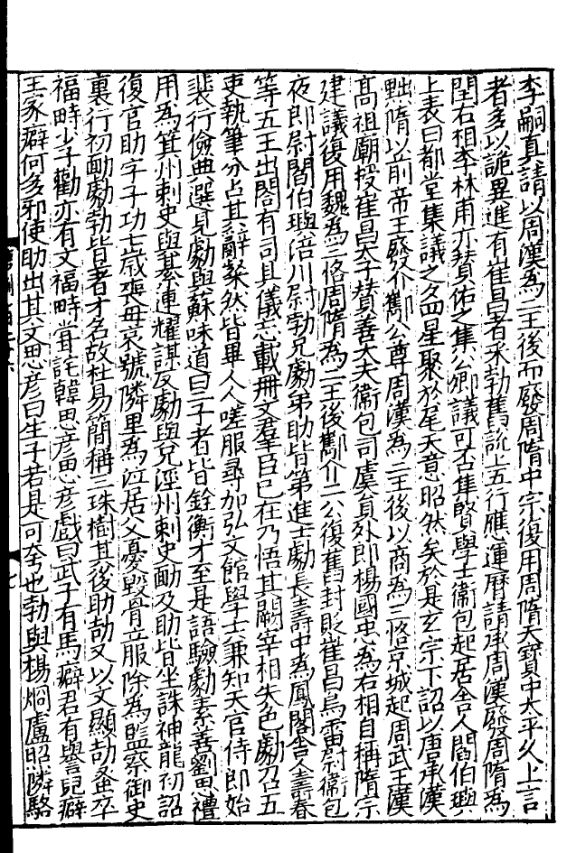 李嗣真請以周漢為二王後而廢周隋中宗復用周隋天寶中太平久上言
者多以詭異進有崔昌者采勃舊說上五行應運曆請承周漢廢周隋為
閏右相李林甫亦贊佑之集公卿議可否集賢學士衞包起居舍人閻伯璵
上表曰都堂集議之夕四星聚於尾天意昭然矣於是玄宗下詔以唐承漢
黜隋以前帝王廢介酅公尊周漢為二王後以商為三恪京城起周武王漢
高祖廟授崔昌太子贊善大夫衞包司虞員外郎楊國忠為右相自稱隋宗
建議復用魏為三恪周隋為二王後酅介二公復舊封貶崔昌烏雷尉衞包
夜郎尉閻伯璵涪川尉勃兄勮弟助皆第進士勮長壽中為鳳閣舍人壽春
等五王出閤有司具儀忘載冊文羣臣已在乃悟其闕宰相失色勮召五
吏執筆分占其辭粲然皆畢人人嗟服尋加弘文館學士兼知天官侍郎始
裴行儉典選見勮與蘇味道曰二子者皆銓衡才至是語驗勮素善劉思禮
用為箕州刺史與綦連耀謀反勮與兄涇州刺史勔及助皆坐誅神龍初詔
復官助字子功七歲喪母哀號隣里為泣居父憂毀骨立服除為監察御史
裏行初勔勮勃皆著才名故杜易簡稱三珠樹其後助劼又以文顯劼蚤卒
福畤少子勸亦有文福畤嘗詫韓思彥思彥戲曰武子有馬癖君有譽兒癖
王家癖何多邪使助出其文思彥曰生子若是可夸也勃與楊烱盧昭隣駱